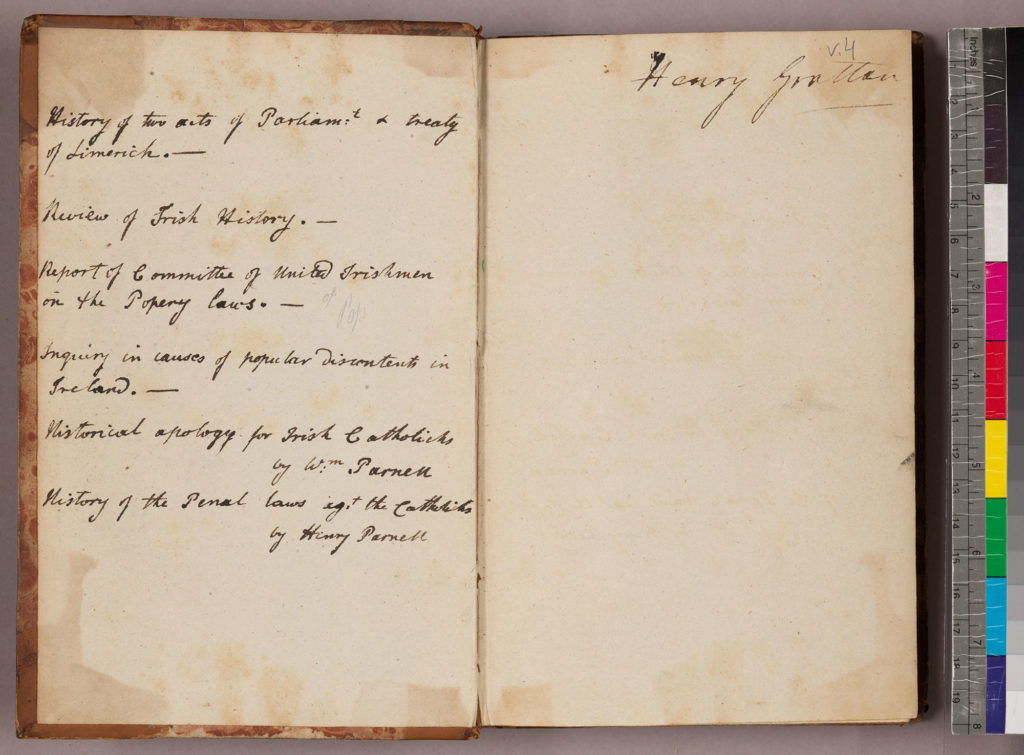 History of two acts of Parliam:t & treaty
of Limerick. —
Review of Irish History. —
Report of Committee of United Irishmen
on the Popery laws. —
of Pop
Inquiry in causes of popular discontents in
Ireland. —
Historical apology for Irish Catholicks
by Wm. Parnell
History of the Penal laws agt. the Catholicks
by Henry Parnell
v.4
Henry Grattan
inches
2
3
4
5
6
7
8
10
11
12
13
14
15
16
17
18
19
2
3
4
5
6
7
8